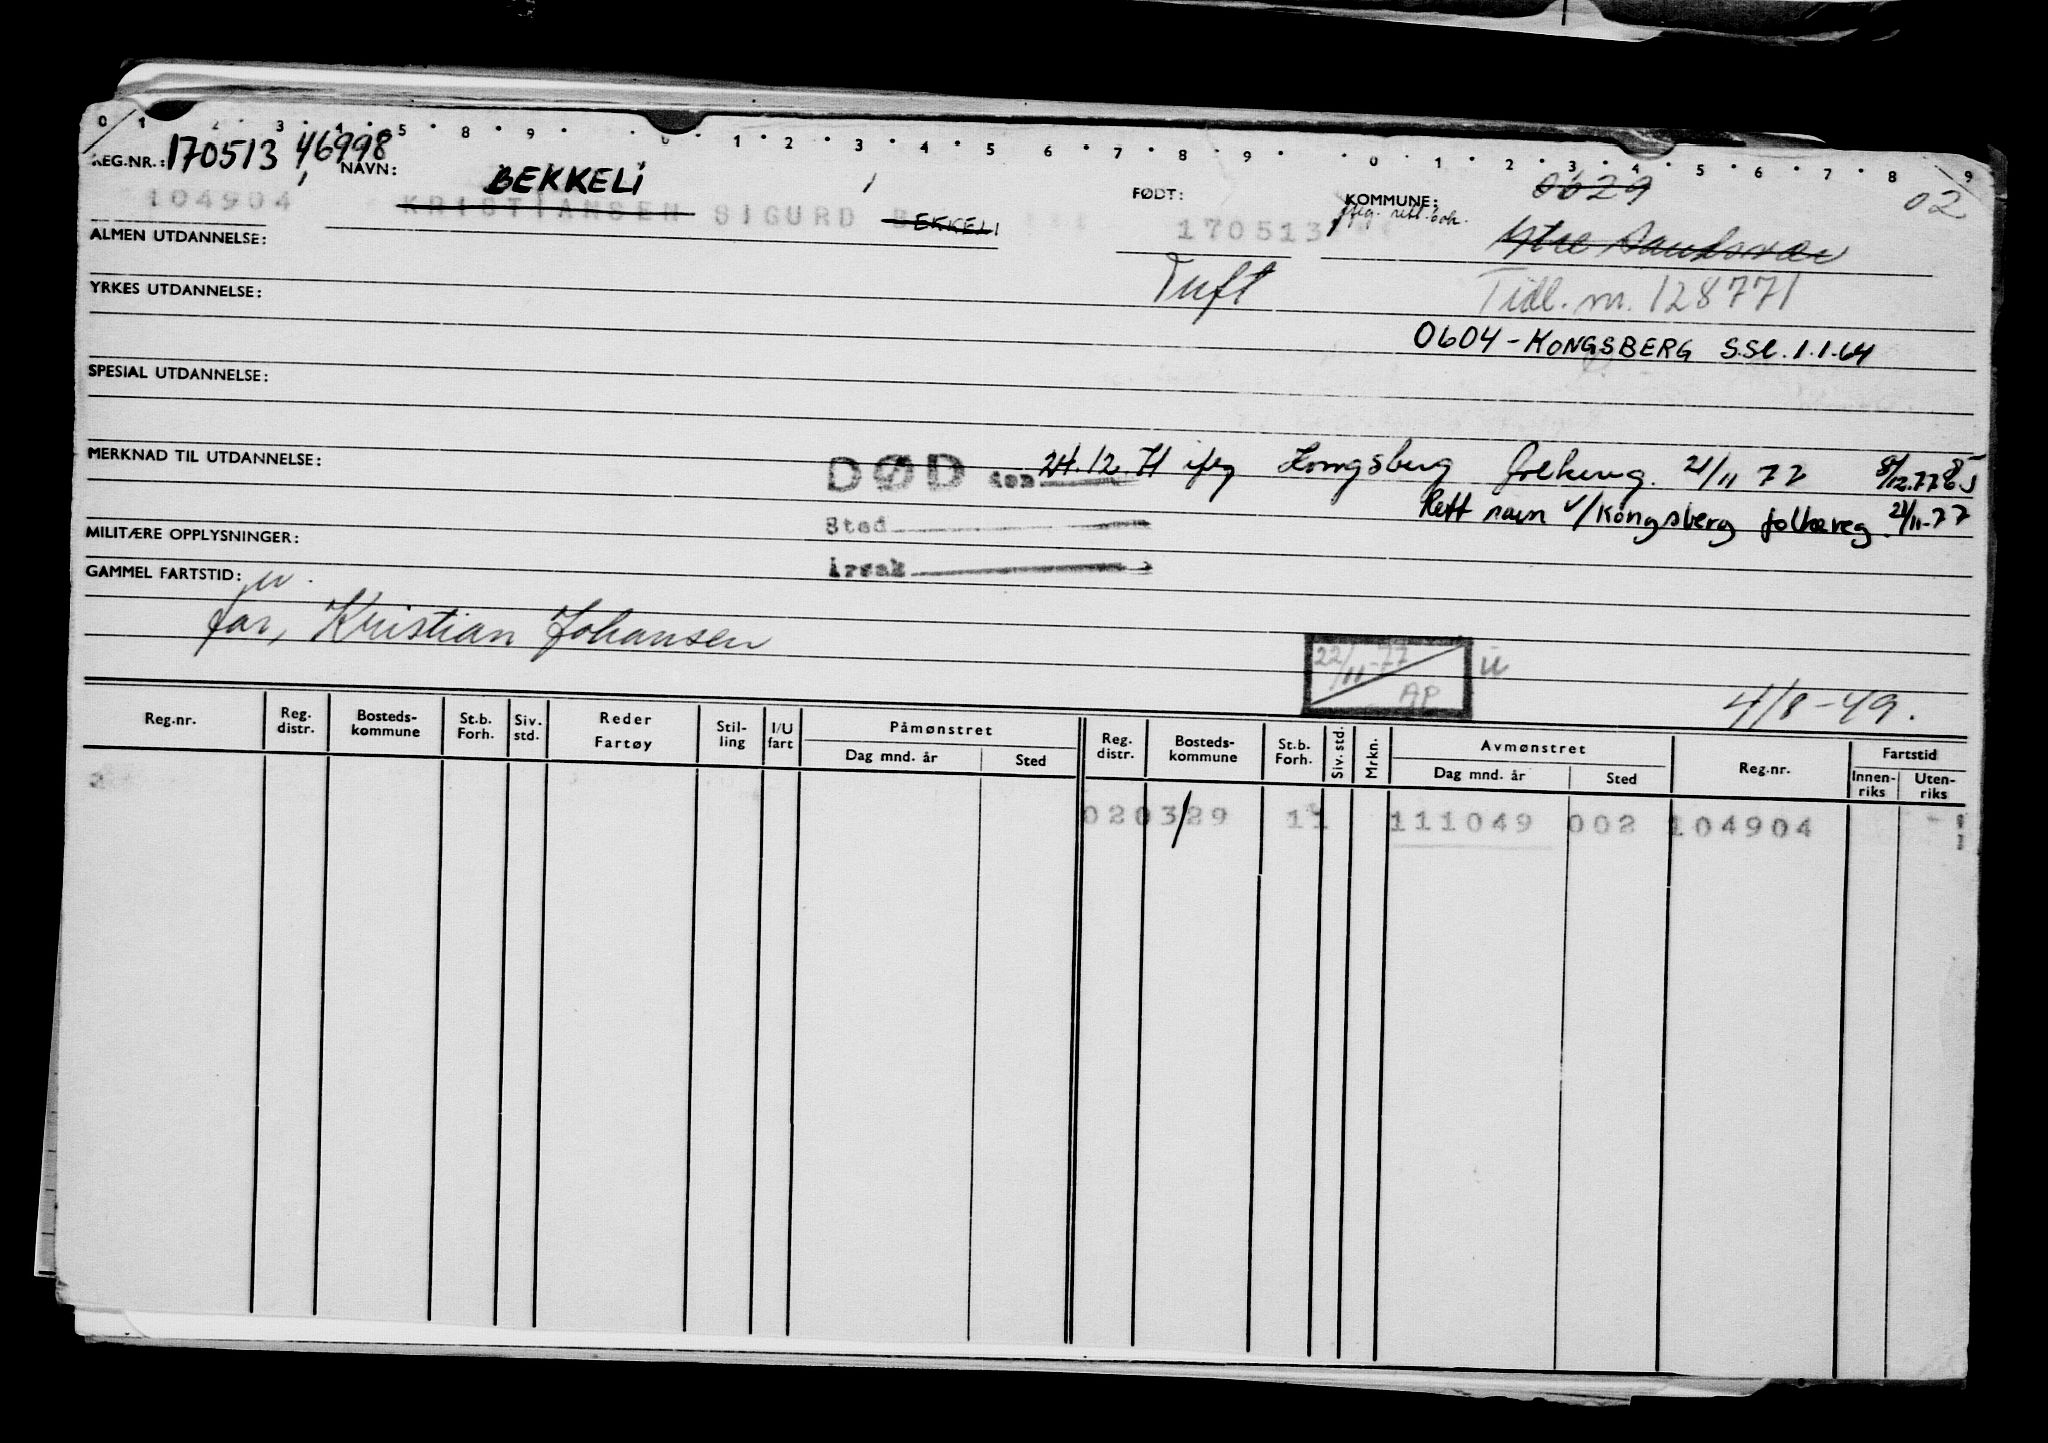 0 1 2 3 4 5 8 9 0 1 2 3 4 5 6 7 8 9 0 1 2 3 4 5 6 7 8 9
REG.NR.: 170513 46998 NAVN: BEKKELI, FØDT: KOMMUNE: 0629 02
104904 KRISTIANSEN SIGURD BEKKELI 170513 Ytre Sandsvær
ALMEN UTDANNELSE:
Tuft Tidl. nr. 128771
YRKES UTDANNELSE:
0604 - KONGSBERG S.Sl. 1.1.64
SPESIAL UTDANNELSE:
MERKNAD TIL UTDANNELSE: DØD den 24.12.71 iflg Kongsberg folkereg. 21/11 77 8/12.77
Sted Rett navn v/Kongsberg folkereg. 21/11-77
MILITÆRE OPPLYSNINGER:
Årsak
GAMMEL FARTSTID:
far, Kristian Johansen
22/11-77 AP
4/8-49.
Reg.nr. Reg. distr. Bosteds-kommune St.b. Forh. Siv. std. Reder Fartøy Stil-ling I/U fart Påmønstret Dag mnd. år Sted Reg. distr. Bosteds-kommune St.b. Forh. Siv. std. Mrkn. Avmønstret Dag mnd. år Sted Reg.nr. Fartstid Innen-riks Uten-riks
2 020329 11 111049 002 104904